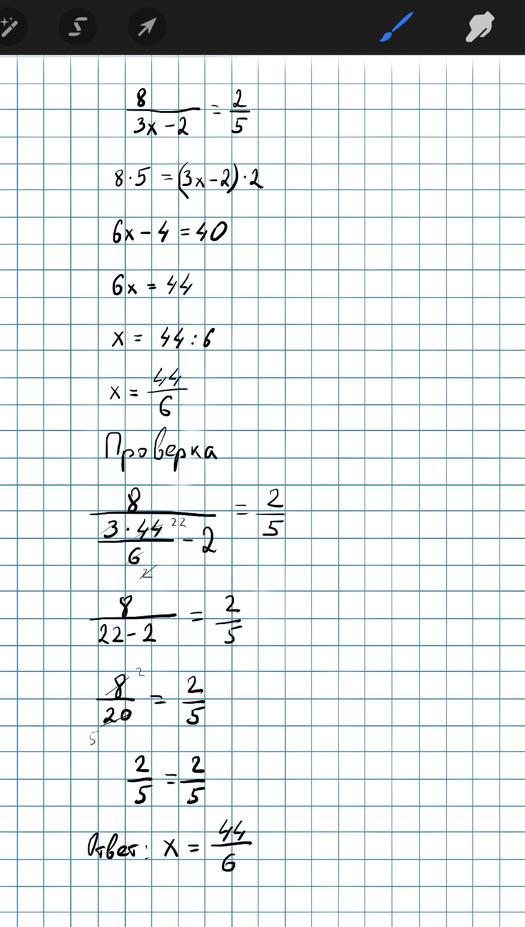 8/(3x-2) = 2/5
8·5 = (3x-2)·2
6x-4 = 40
6x = 44
x = 44:6
x = 44/6
Проверка
8/(3·44 22/6 2 - 2) = 2/5
8/(22-2) = 2/5
8 2/20 5 = 2/5
2/5 = 2/5
Ответ: x = 44/6